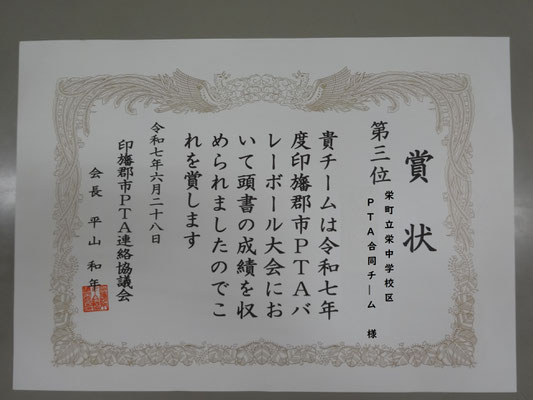 賞状
第三位
栄町立栄中学校区
PTA合同チーム 様
貴チームは令和七年
度印旛郡市PTAバ
レーボール大会にお
いて頭書の成績を収
められましたのでこ
れを賞します
令和七年六月二十八日
印旛郡市PTA連絡協議会
会長 平山 和年